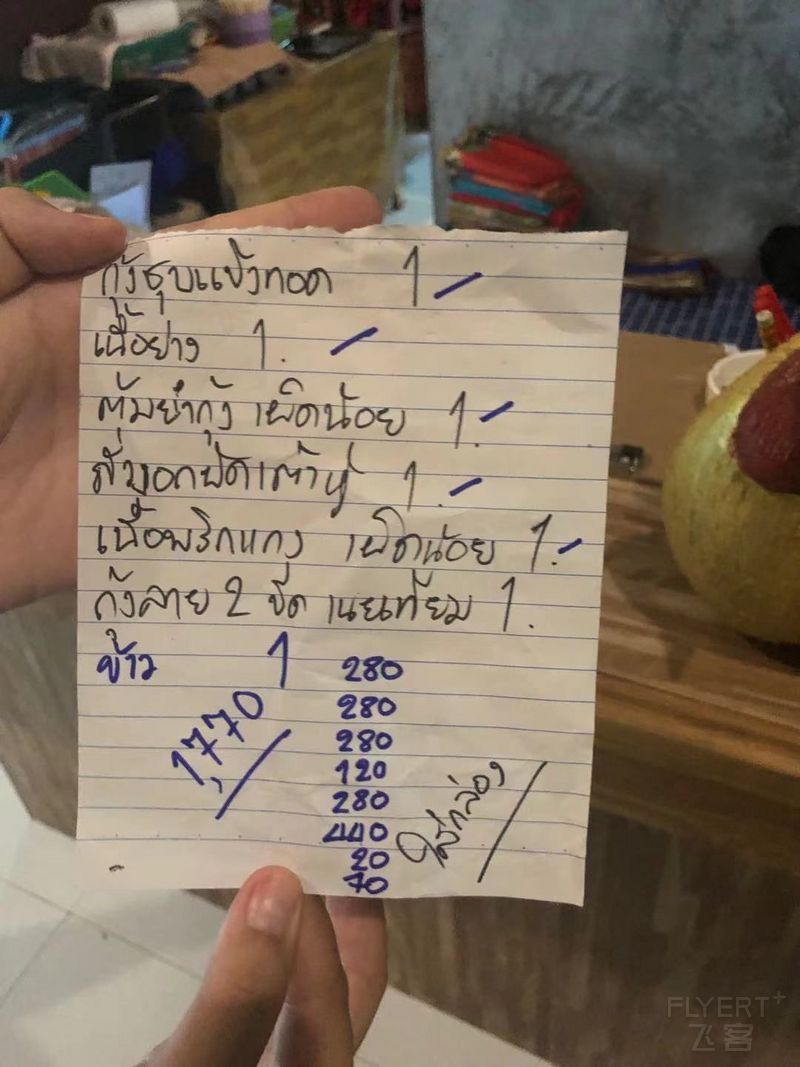 กุ้งชุบแป้งทอด 1
เนื้อย่าง 1.
ต้มยำกุ้ง เผ็ดน้อย 1.
1.
เนื้อพริกแกง เผ็ดน้อย 1.
กุ้งลาย 2 ขีด เนยเทียม 1.
ข้าว 1 280
280
280
120
280
440
20
70
1,770
ใส่กล่อง
FLYERT+
飞客